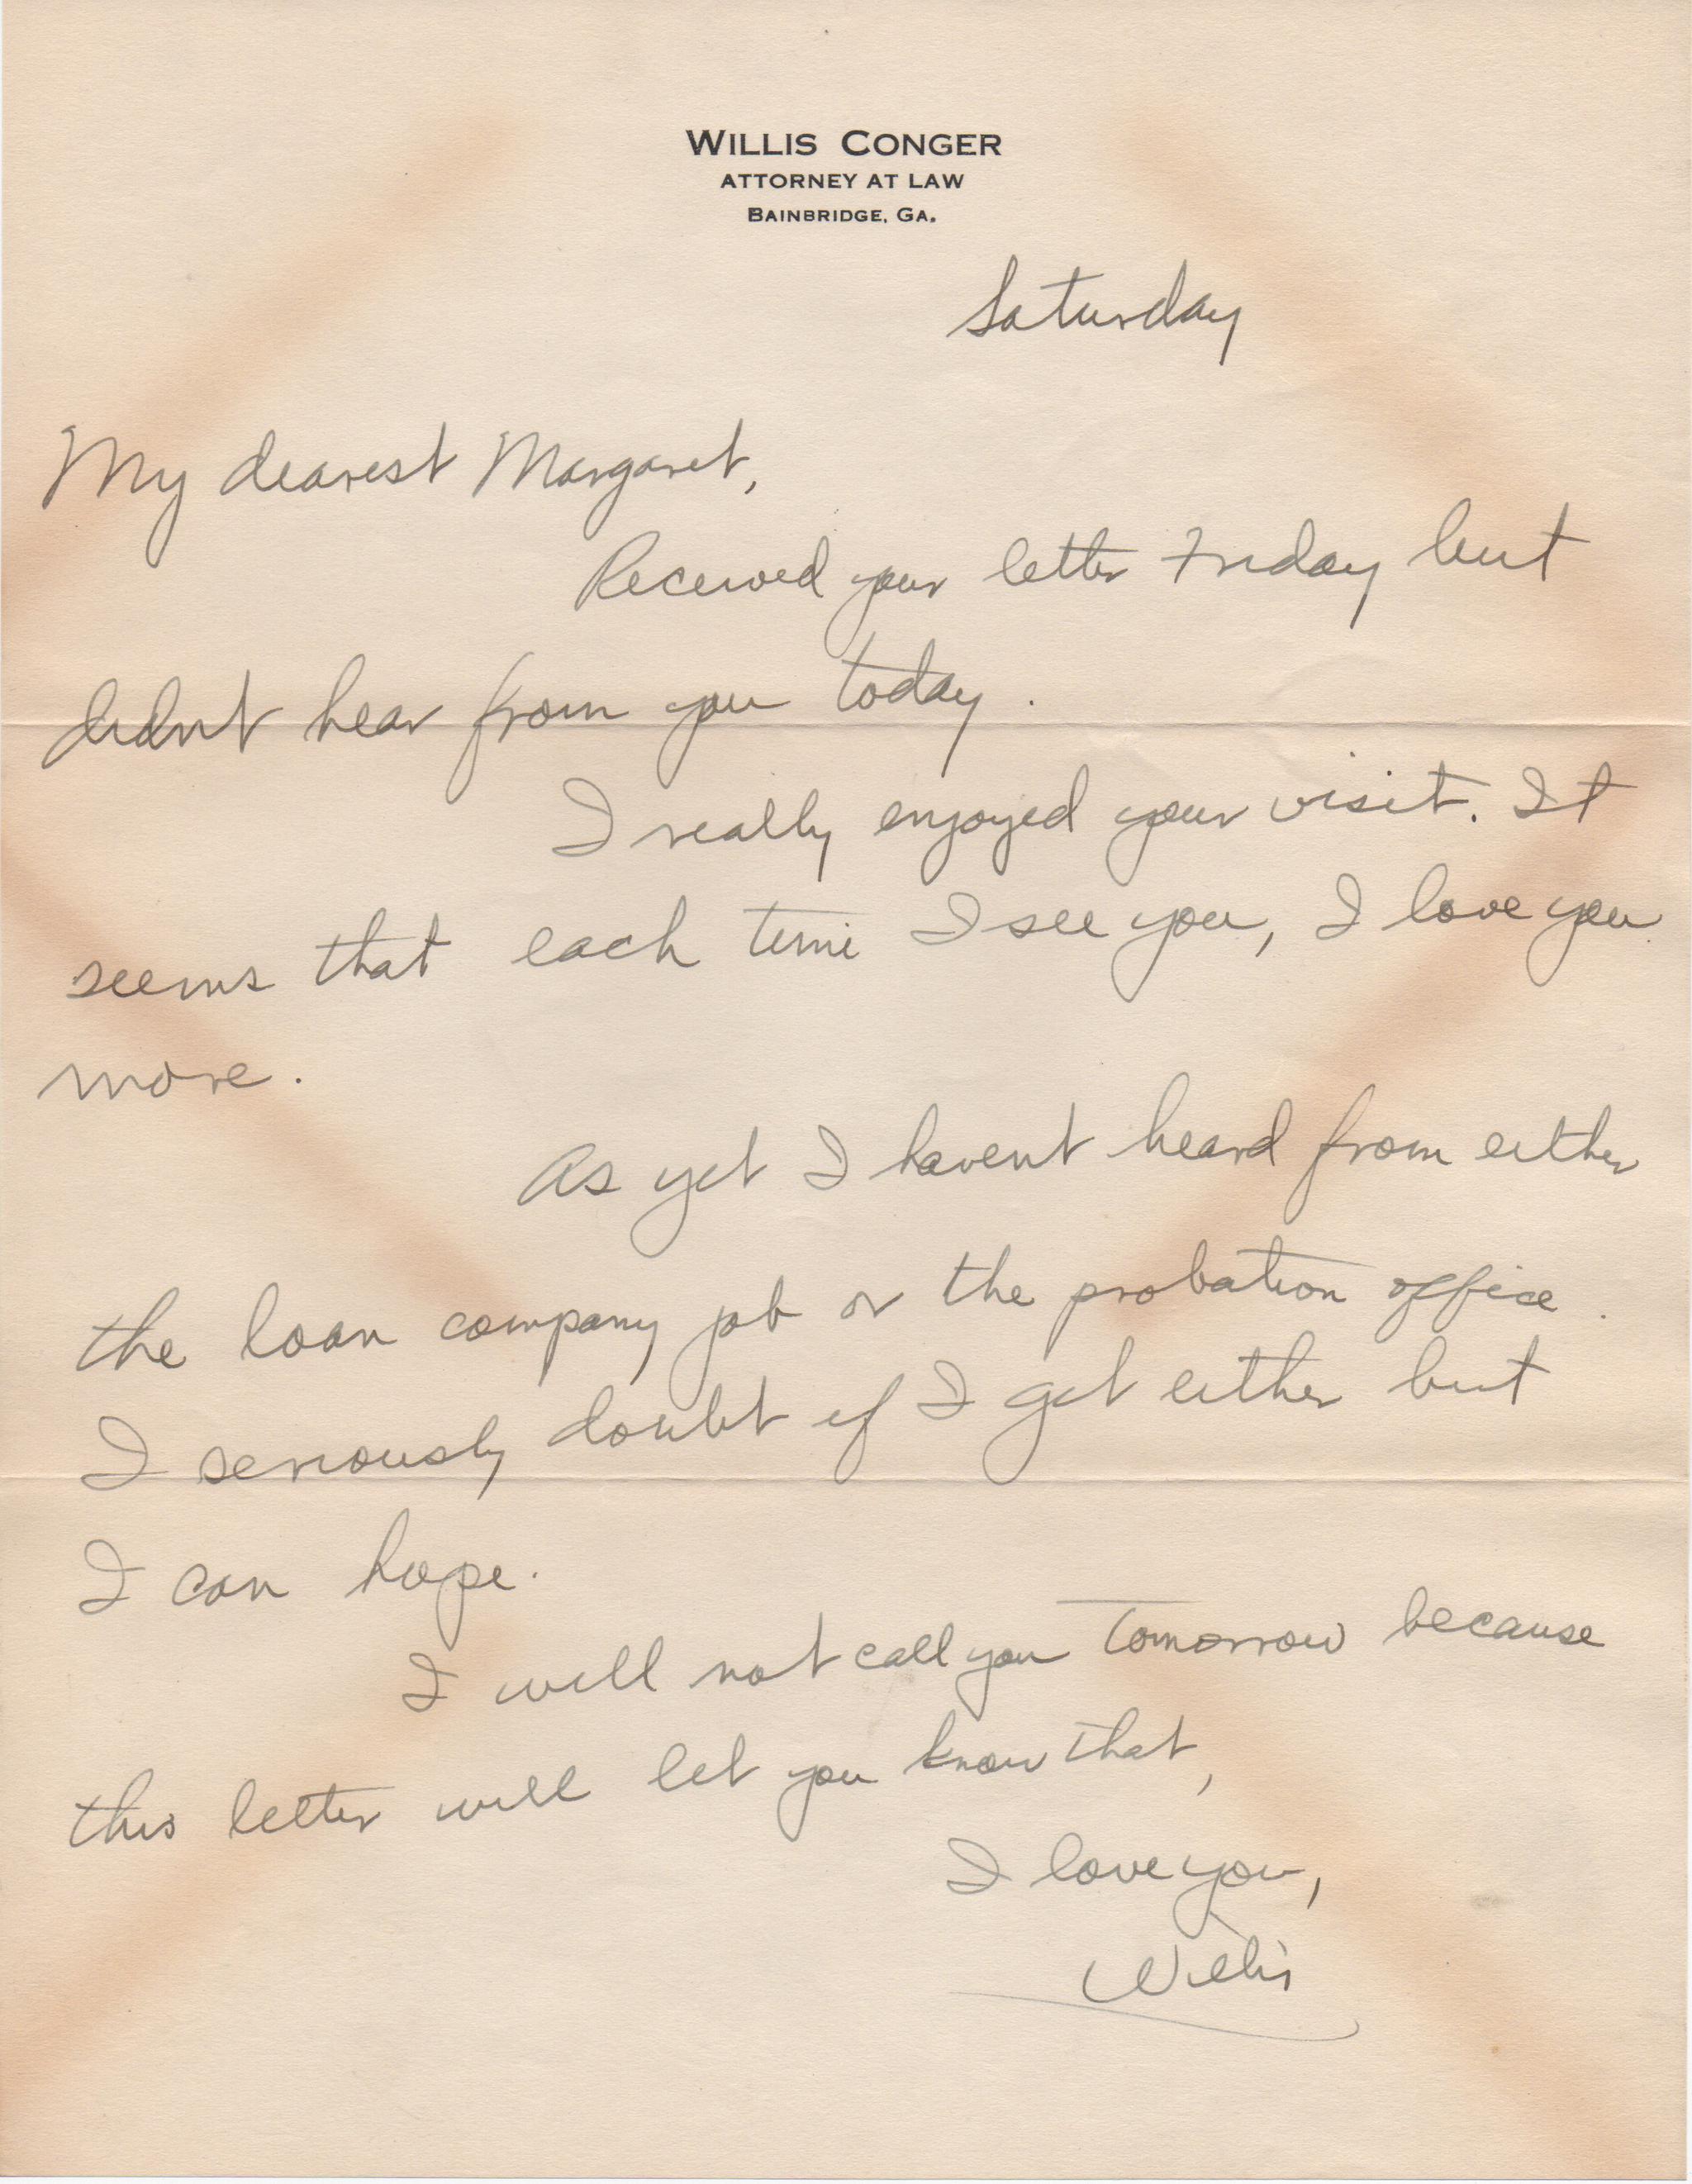 WILLIS CONGER
ATTORNEY AT LAW
BAINBRIDGE, GA.
Saturday
My dearest Margaret,
Received your letter Friday but
didn't hear from you today.
I really enjoyed your visit. It
seems that each time I see you, I love you
more.
As yet I havent heard from either
the loan company job or the probation office.
I seriously doubt if I get either but
I can hope.
I will not call you tomorrow because
this letter will let you know that,
I love you,
Willis